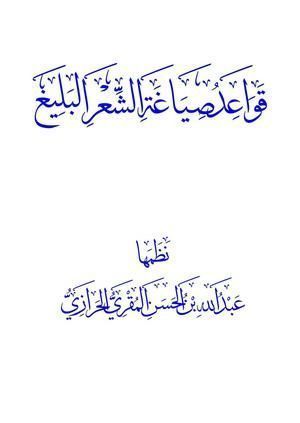 قَوَاعِدُ صِيَاغَةِ الشِّعْرِ البَلِيغِ
نَظَمَهَا
عَبْدُ اللهِ بْنُ الحَسَنِ المُقْرِيُّ الحَرَازِيُّ